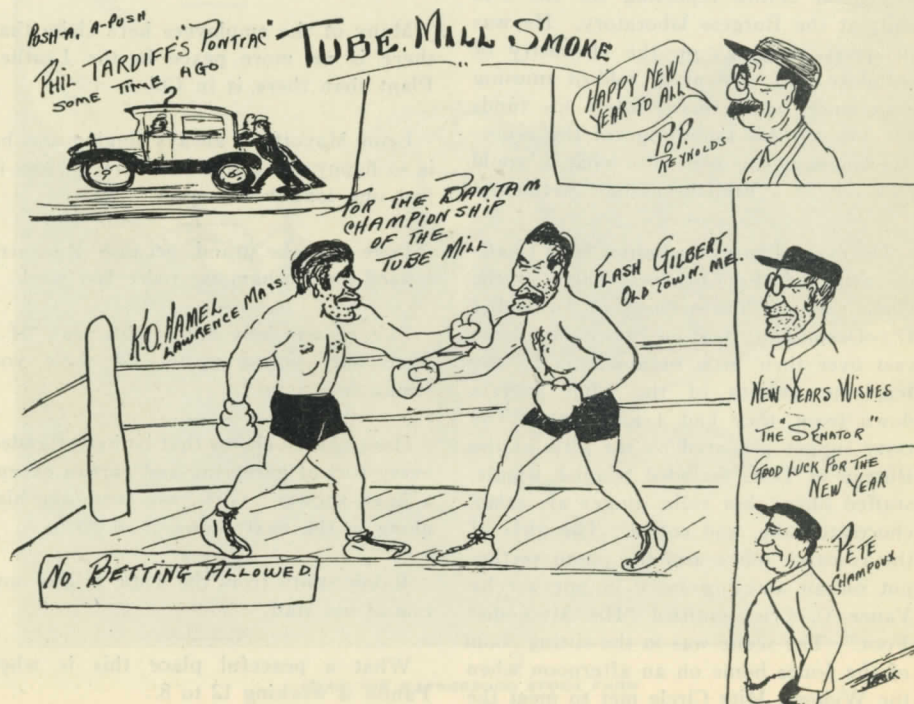 TUBE. MILL SMOKE
PUSH-A, A-PUSH
PHIL TARDIFF'S "PONTIAC"
SOME TIME AGO
HAPPY NEW
YEAR TO ALL
POP.
REYNOLDS
FOR THE BANTAM
CHAMPIONSHIP
OF THE
TUBE MILL
K.O. HAMEL
LAWRENCE MASS.
FLASH GILBERT.
OLD TOWN. ME.
NEW YEARS WISHES
THE "SENATOR"
GOOD LUCK FOR THE
NEW YEAR
PETE
CHAMPOUX
NO BETTING ALLOWED